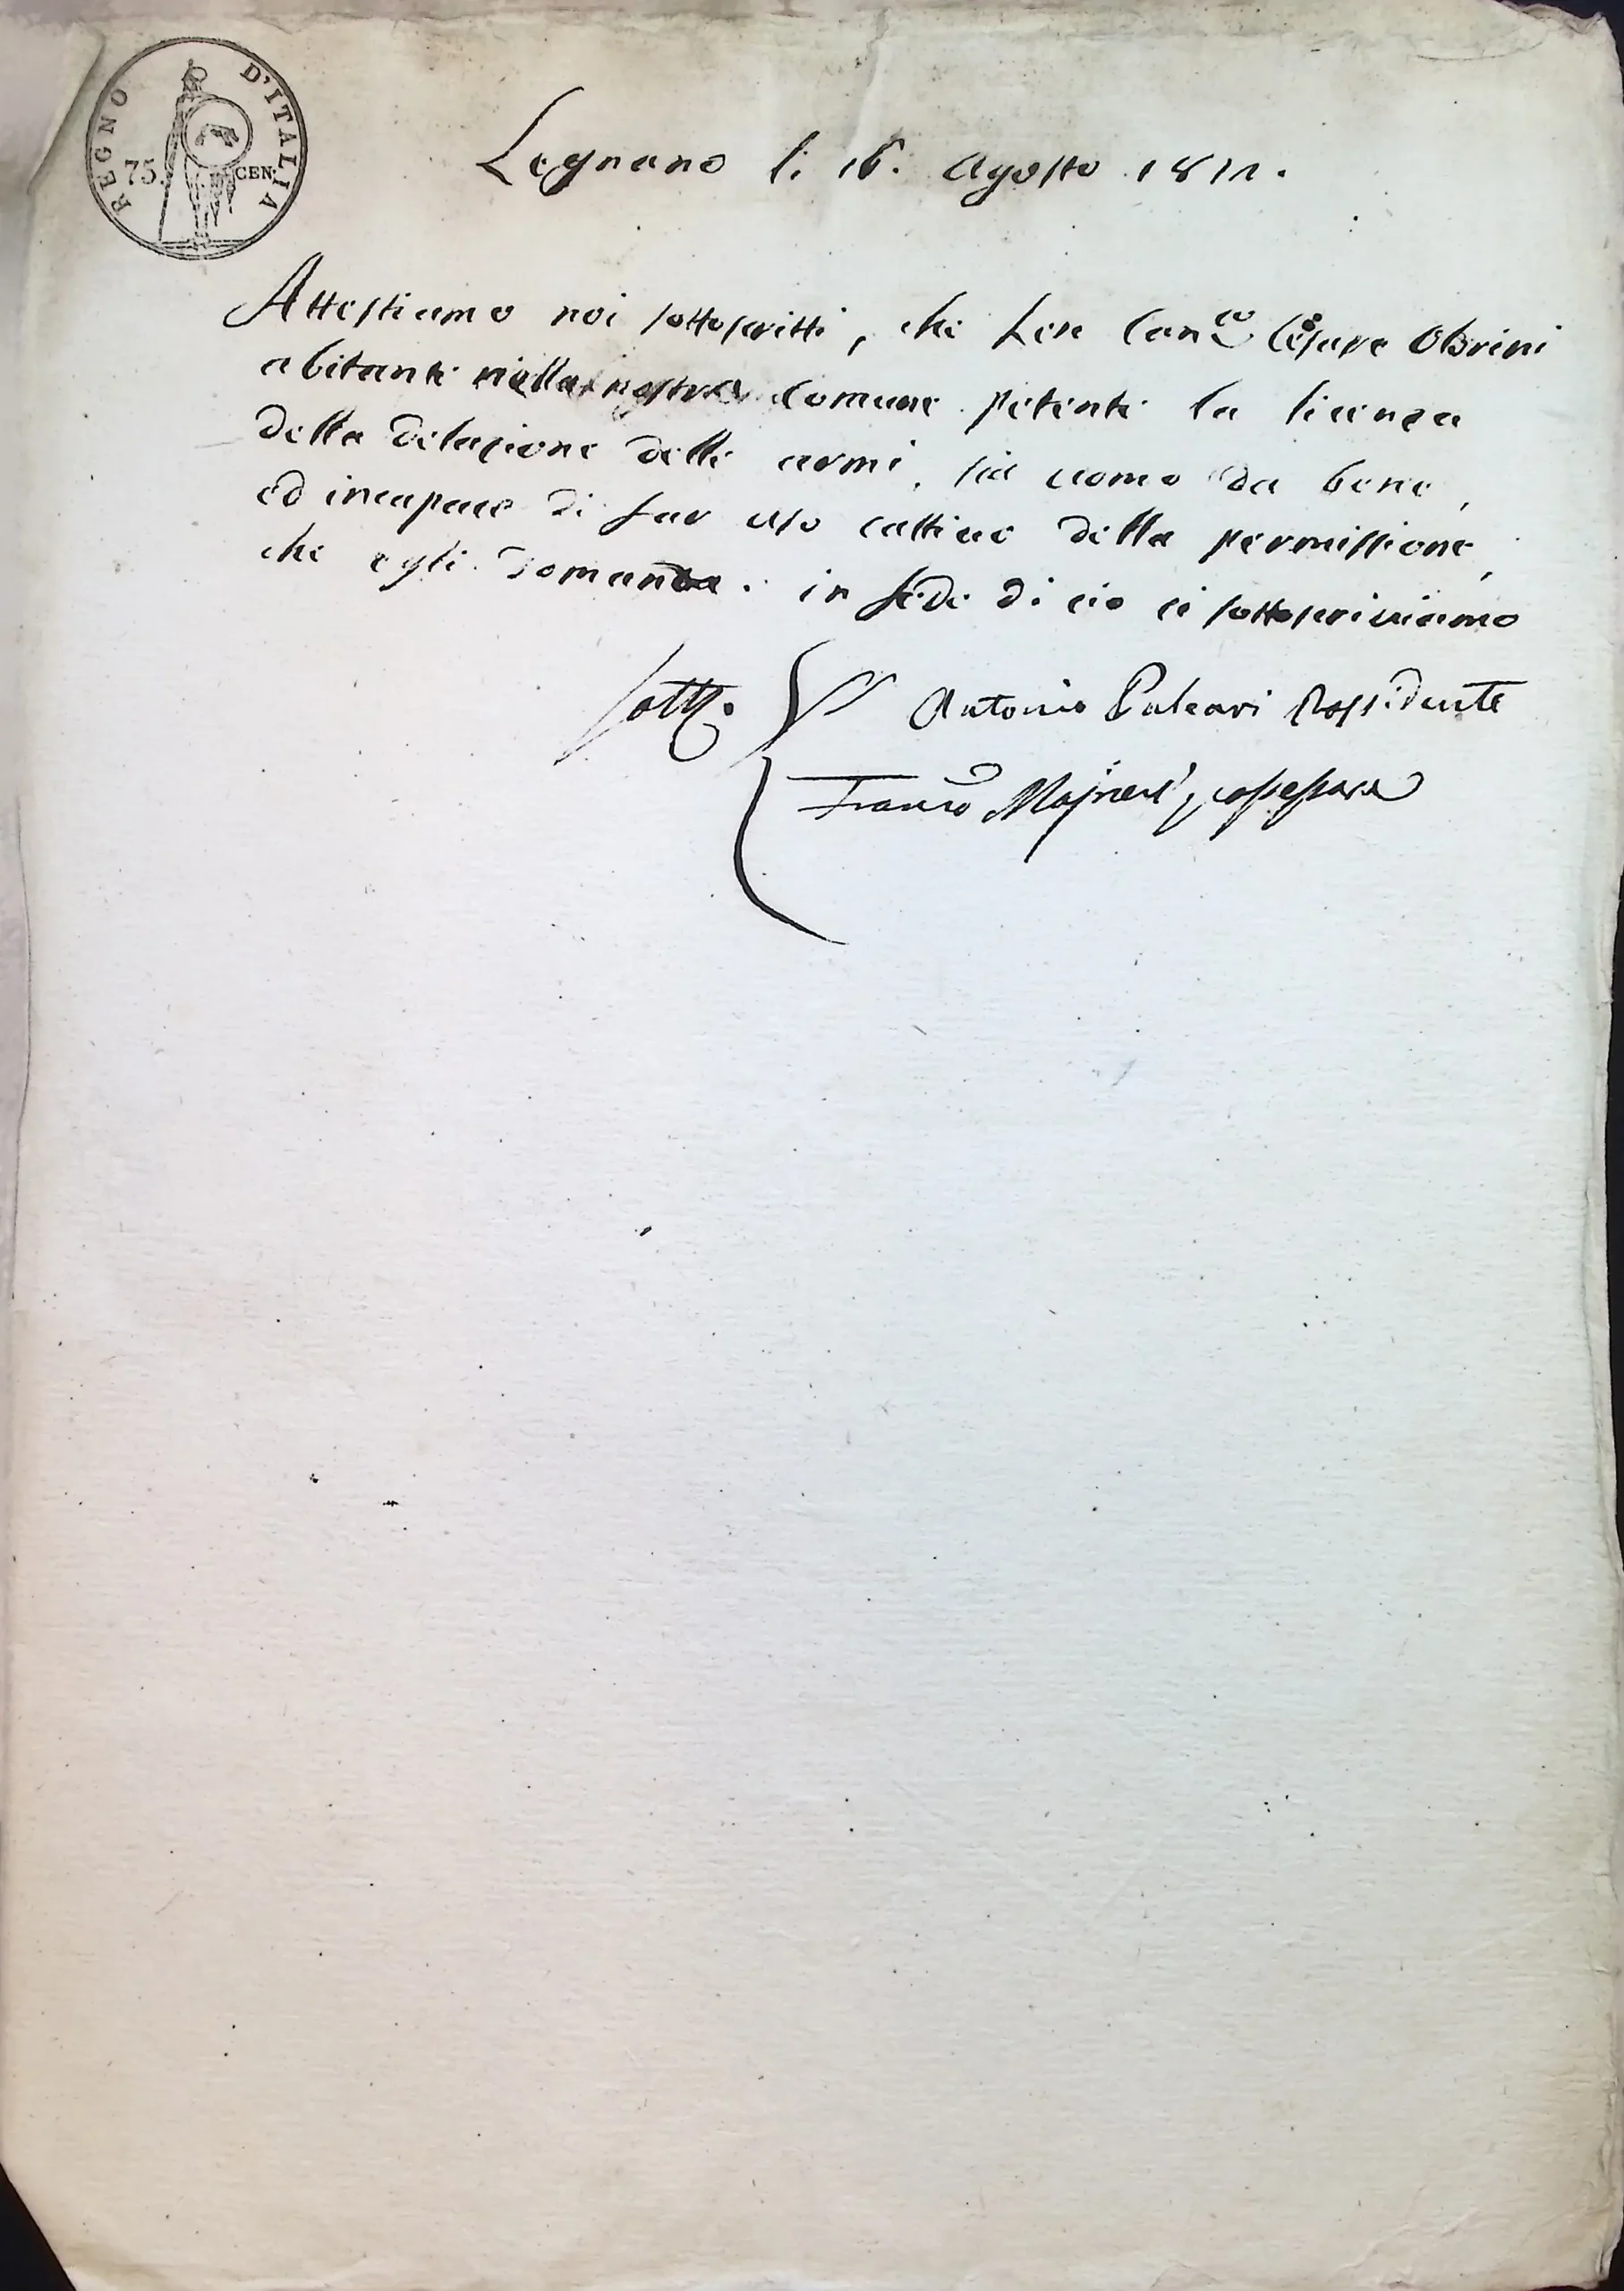 REGNO D'ITALIA
75. CEN.
Legnano li 16. Agosto 1811.
Attestiamo noi sottoscritti, che Can.co Cesare Obrini
abitante nella nostra Comune petente la licenza
della delazione delle armi, sia uomo da bene,
ed incapace di far uso cattivo della permissione,
che egli domanda. in fede di cio ci sottoscriviamo
Sott.
Antonio Paleari Possidente
Franco possessore